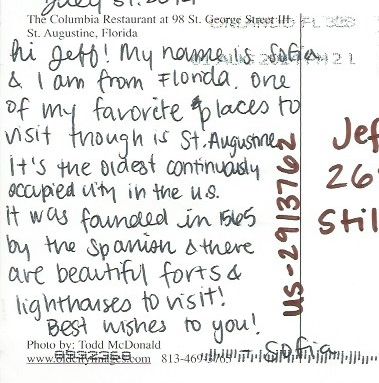 July 31. 2014
The Columbia Restaurant at 98 St. George Street III
St. Augustine, Florida
Hi Jeff! My name is Sofia
& I am from Florida. One
of my favorite places to
visit though is St. Augustine.
It's the oldest continuously
occupied city in the U.S.
It was founded in 1565
by the Spanish & there
are beautiful forts &
lighthouses to visit!
Best wishes to you!
- Sofia
Photo by: Todd McDonald
www.oldcityimages.com 813-469-3765
US-2913762
Jef
26
Stil